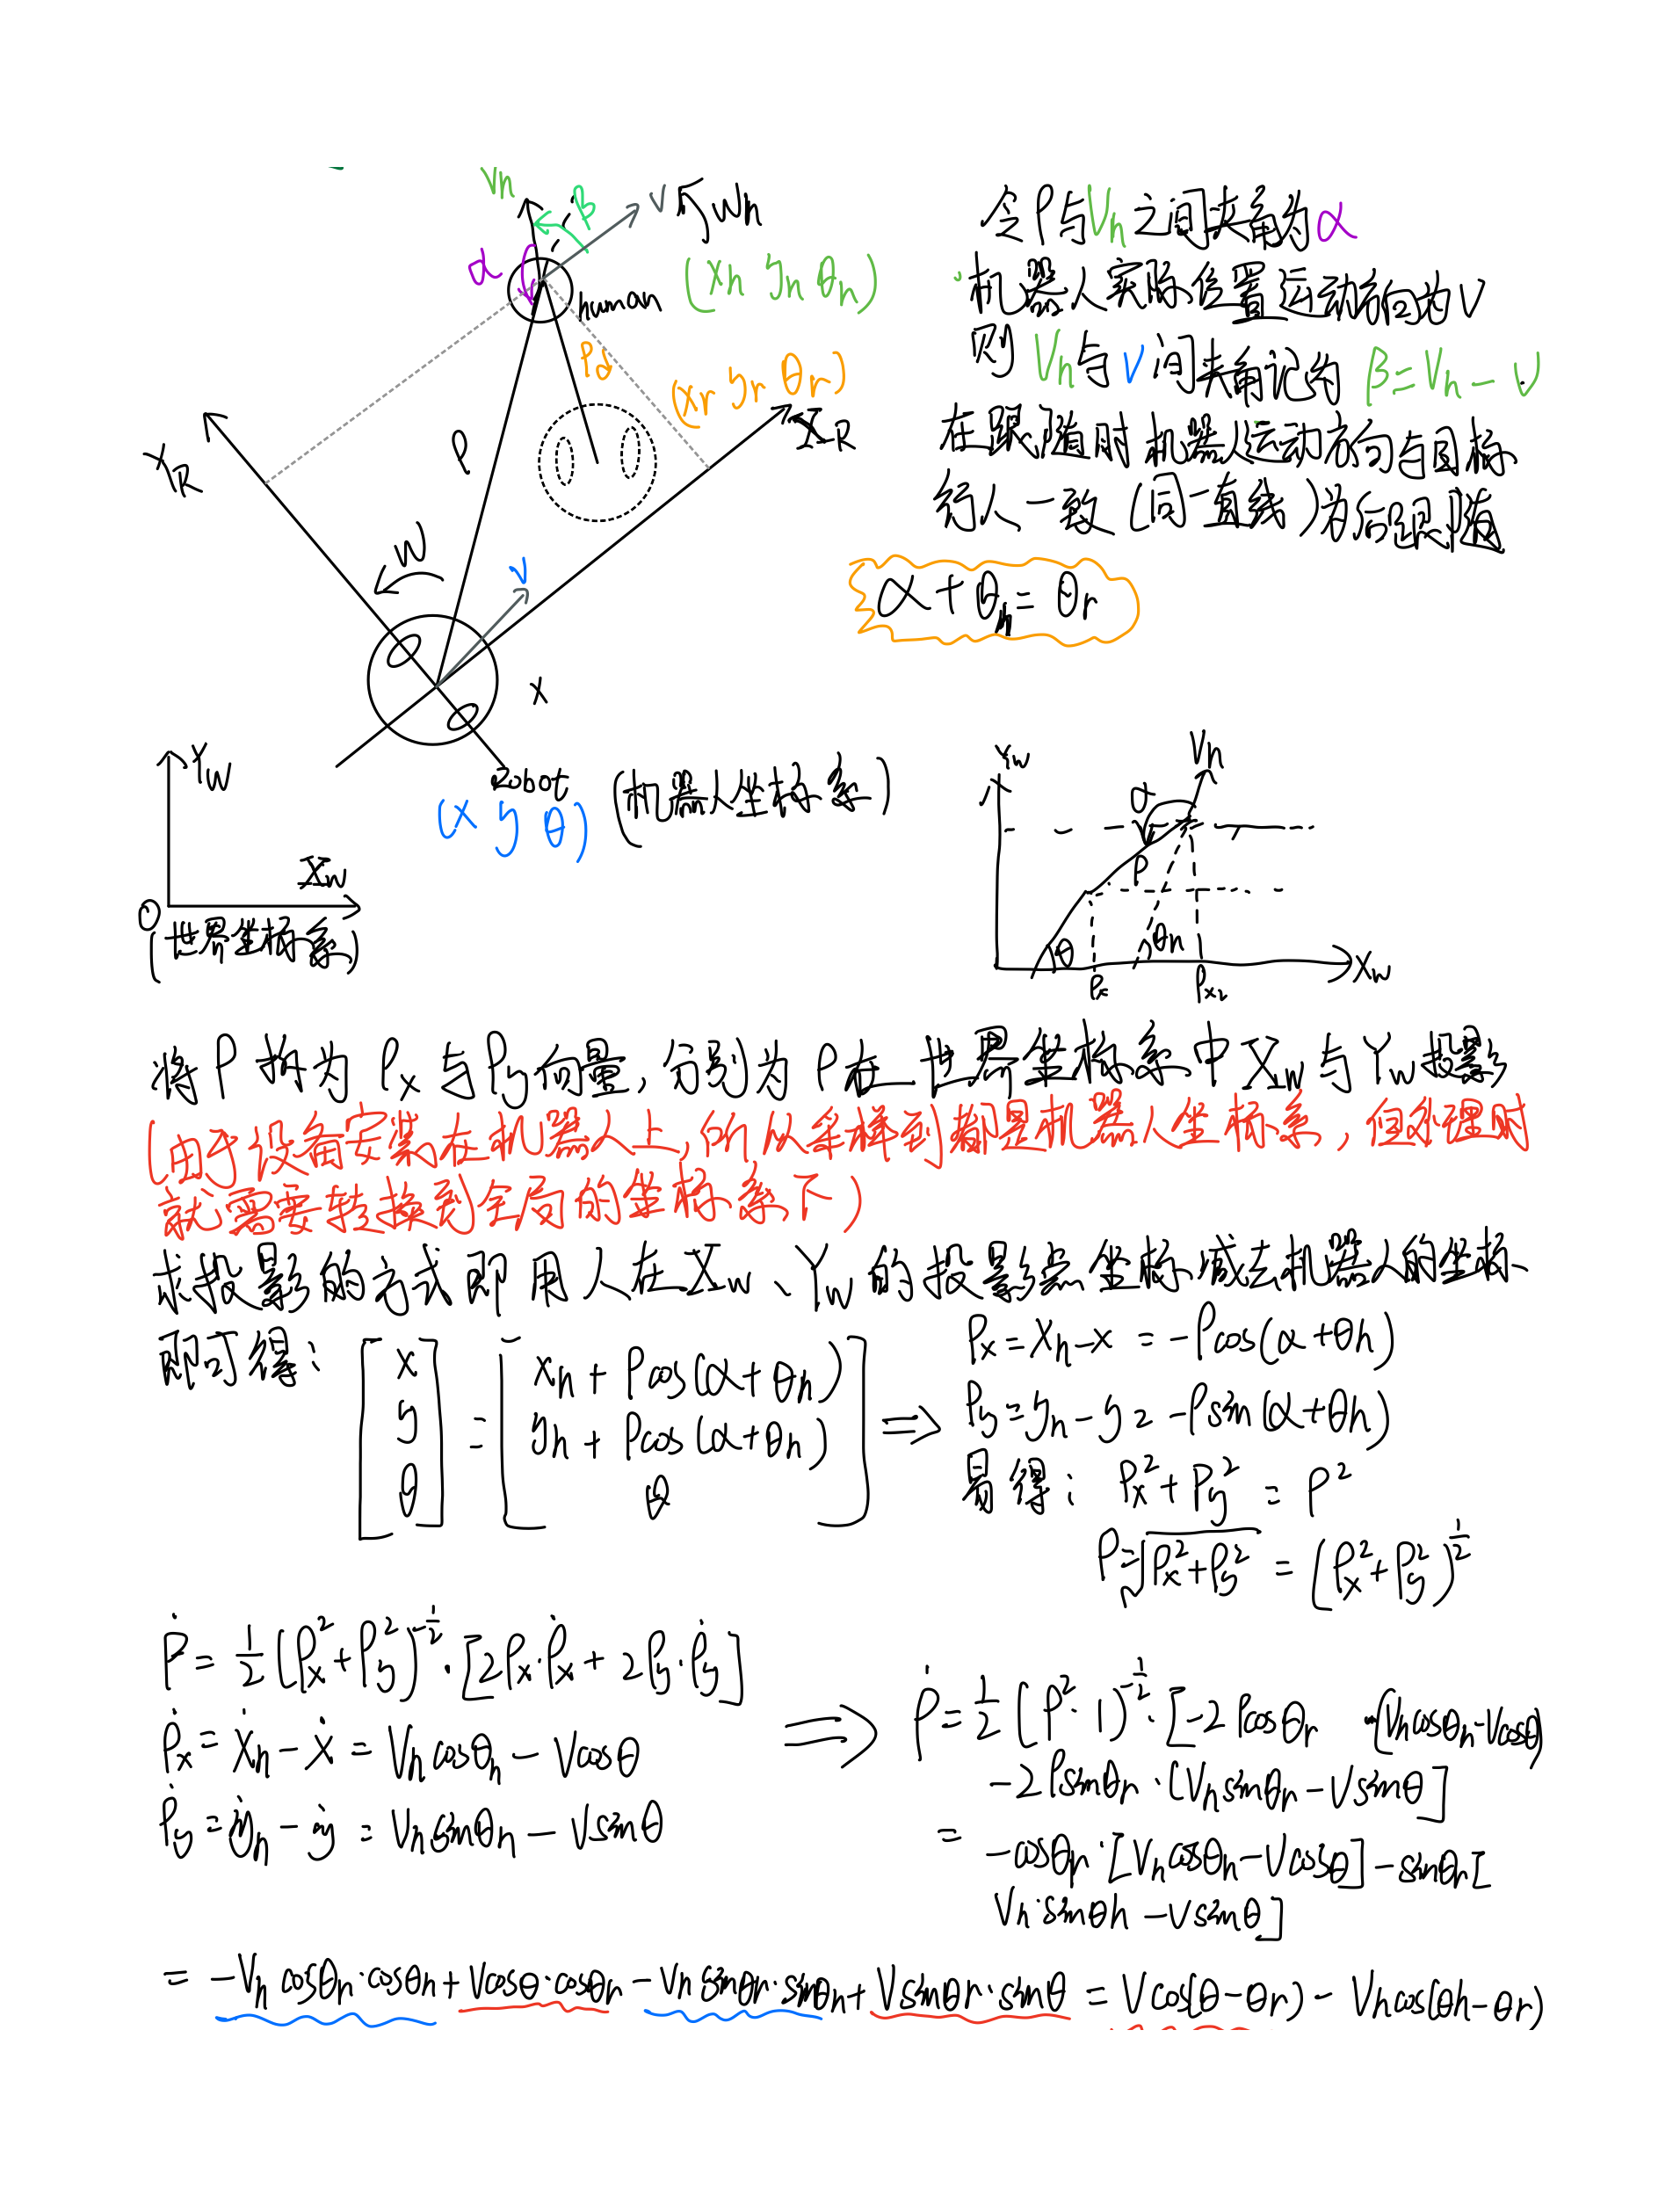 Vn β V Wn
α
human (xh yh θh)
ρd
(xr yr θr)
X_R
Y_R
ρ
W
V
x
Robot (机器人坐标系)
(x y θ)
Y_W
X_W
O
(世界坐标系)
令ρ与Vh之间夹角为α
机器人实际位置运动方向为V
则Vh与V间夹角记为 β=Vh-V
在跟随时机器人运动方向与目标
行人一致(同一直线)为后跟随
α+θh=θr
Yw
Vh
α
ρ
θ θh
Px Px2
Xw
将ρ拆为ρx与ρy向量,分别为ρ在世界坐标系中Xw与Yw投影
(由于设备安装在机器人上,所以采样到都是机器人坐标系,但处理时
就需要转换到全局的坐标系下)
求投影的方式即用人在Xw、Yw的投影点坐标减去机器人的坐标
即可得: [x y θ] = [xh+ρcos(α+θh) yh+ρcos(α+θh) θ] ⟹
ρx=xh-x=-ρcos(α+θh)
ρy=yh-y=-ρsin(α+θh)
易得: ρx²+ρy²=ρ²
ρ=√(ρx²+ρy²)=(ρx²+ρy²)^½
ρ̇=½(ρx²+ρy²)^-½·[2ρx·ρ̇x+2ρy·ρ̇y]
ρ̇x=ẋh-ẋ=Vhcosθh-Vcosθ
ρ̇y=ẏh-ẏ=Vhsinθh-Vsinθ
⟹ ρ̇=½(ρ²·1)^-½·[-2ρcosθr·(Vhcosθh-Vcosθ)
-2ρsinθr·(Vhsinθh-Vsinθ]
= -cosθr·[Vhcosθh-Vcosθ]-sinθr[
Vh·sinθh-Vsinθ]
= -Vhcosθr·cosθh+Vcosθ·cosθr-Vhsinθr·sinθh+Vsinθr·sinθ=Vcos(θ-θr)-Vhcos(θh-θr)